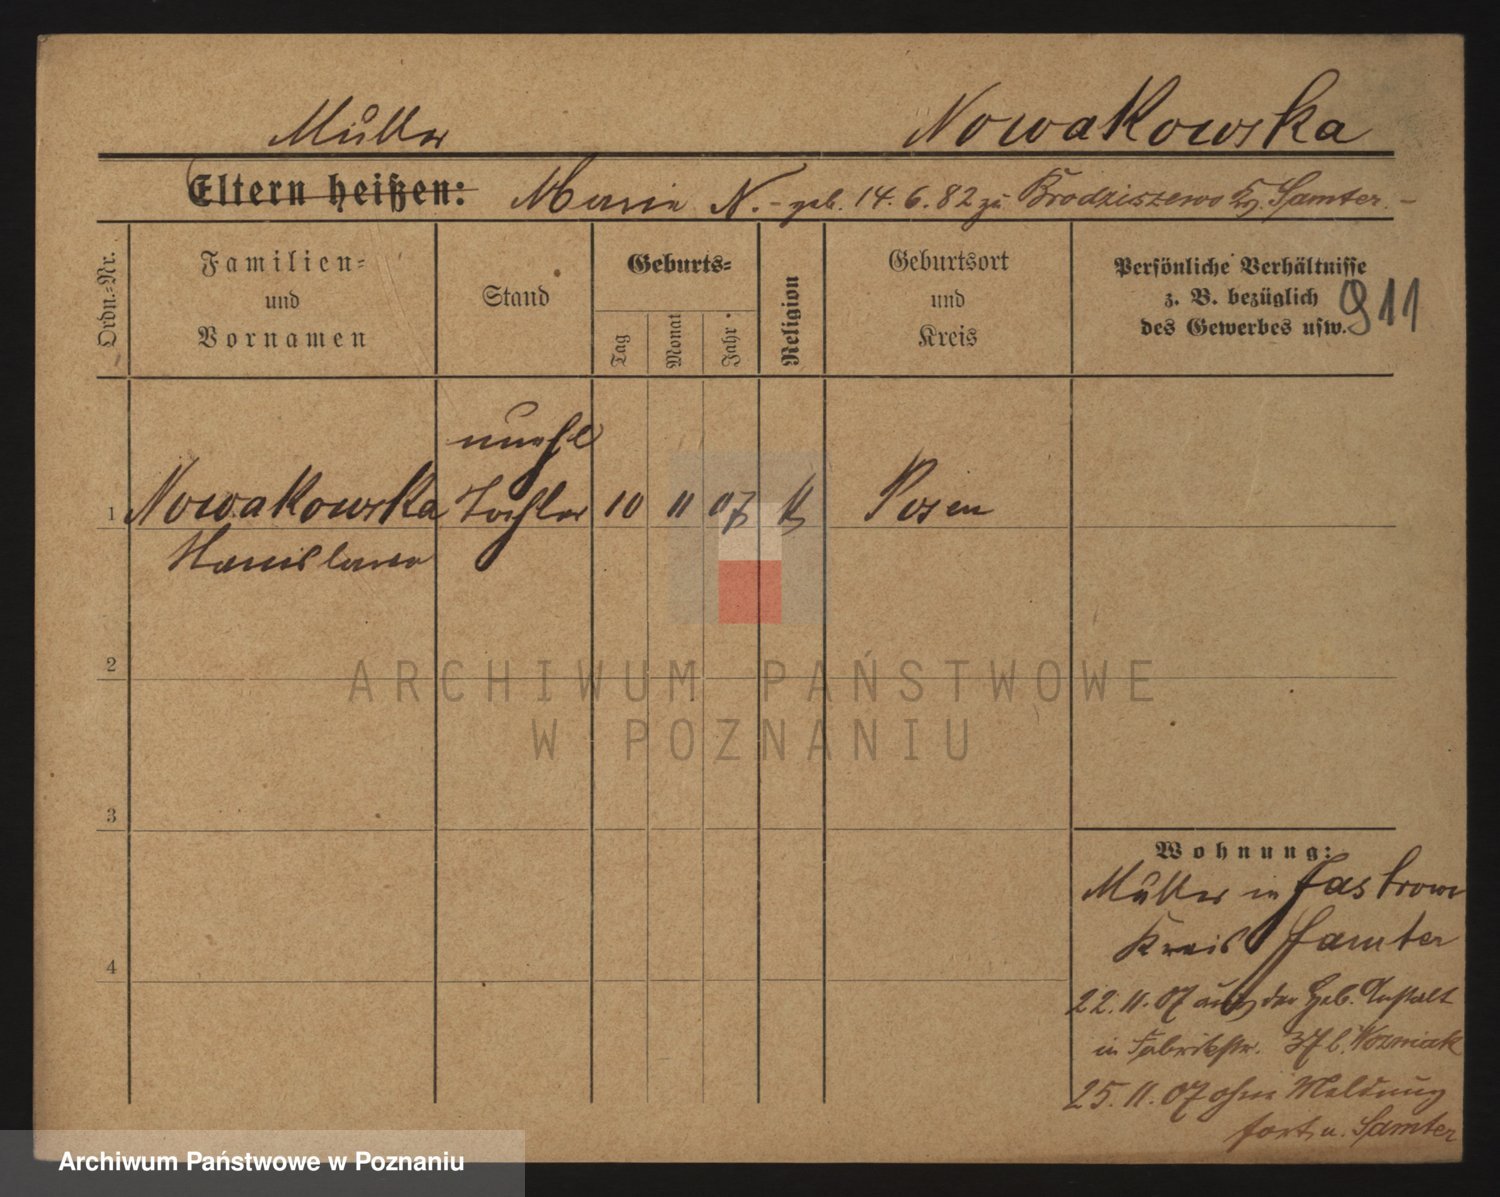 Mutter
Nowakowska
Eltern heißen: Marie N. - geb. 14.6.82 zu Brodziszewo Kr. Samter. -
Ordn.-Nr.
Familien-
und
Vornamen
Stand
Geburts-
Tag
Monat
Jahr
Religion
Geburtsort
und
Kreis
Persönliche Verhältnisse
z. B. bezüglich
des Gewerbes usw.
911
unehl
1 Nowakowska Tochter 10 11 07 k Posen
Stanislawa
2
3
4
Wohnung:
Mutter in Jastrowo
Kreis Samter
22.11.07 aus der Geb. Anstalt
in Fabrikstr. 37 b. Wozniak
25.11.07 ohne Meldung
fort n. Samter
ARCHIWUM PAŃSTWOWE
W POZNANIU
Archiwum Państwowe w Poznaniu